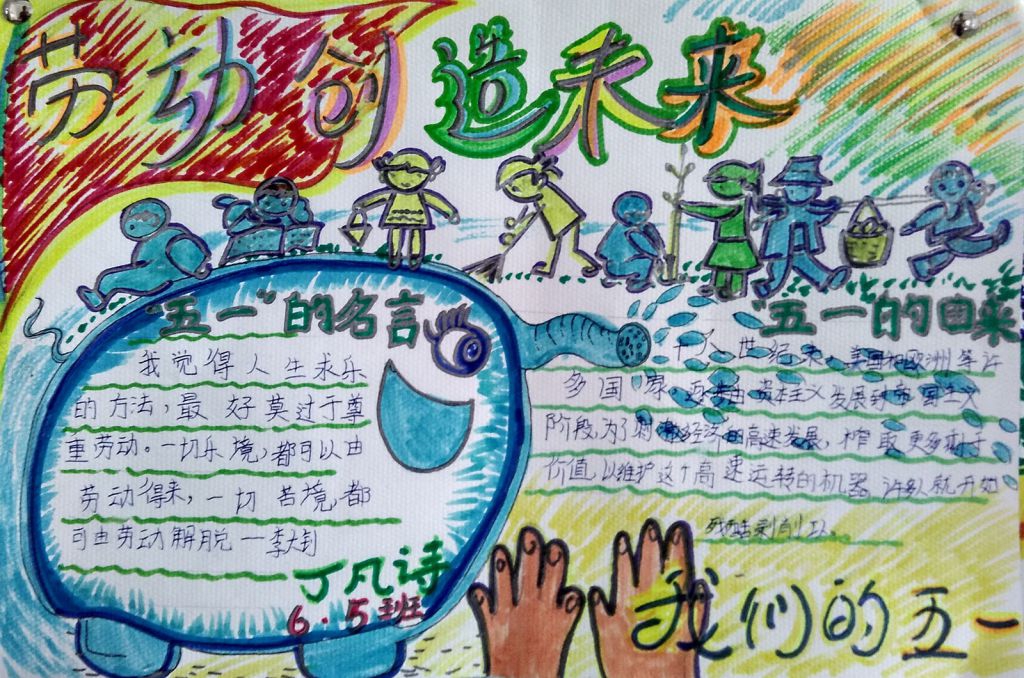 劳动创造未来
"五一"的名言
我觉得人生求乐
的方法，最好莫过于尊
重劳动。一切乐境，都可以由
劳动得来，一切苦境都
可由劳动解脱 一李大钊
丁凡诗
6.5班
"五一"的由来
十八世纪末，美国和欧洲等许
多国家，逐步由资本主义发展到帝国主义
阶段，为了刺激经济的高速发展，榨取更多剩于
价值，以维护这个高速运转的机器
残酷剥削
我们的五一